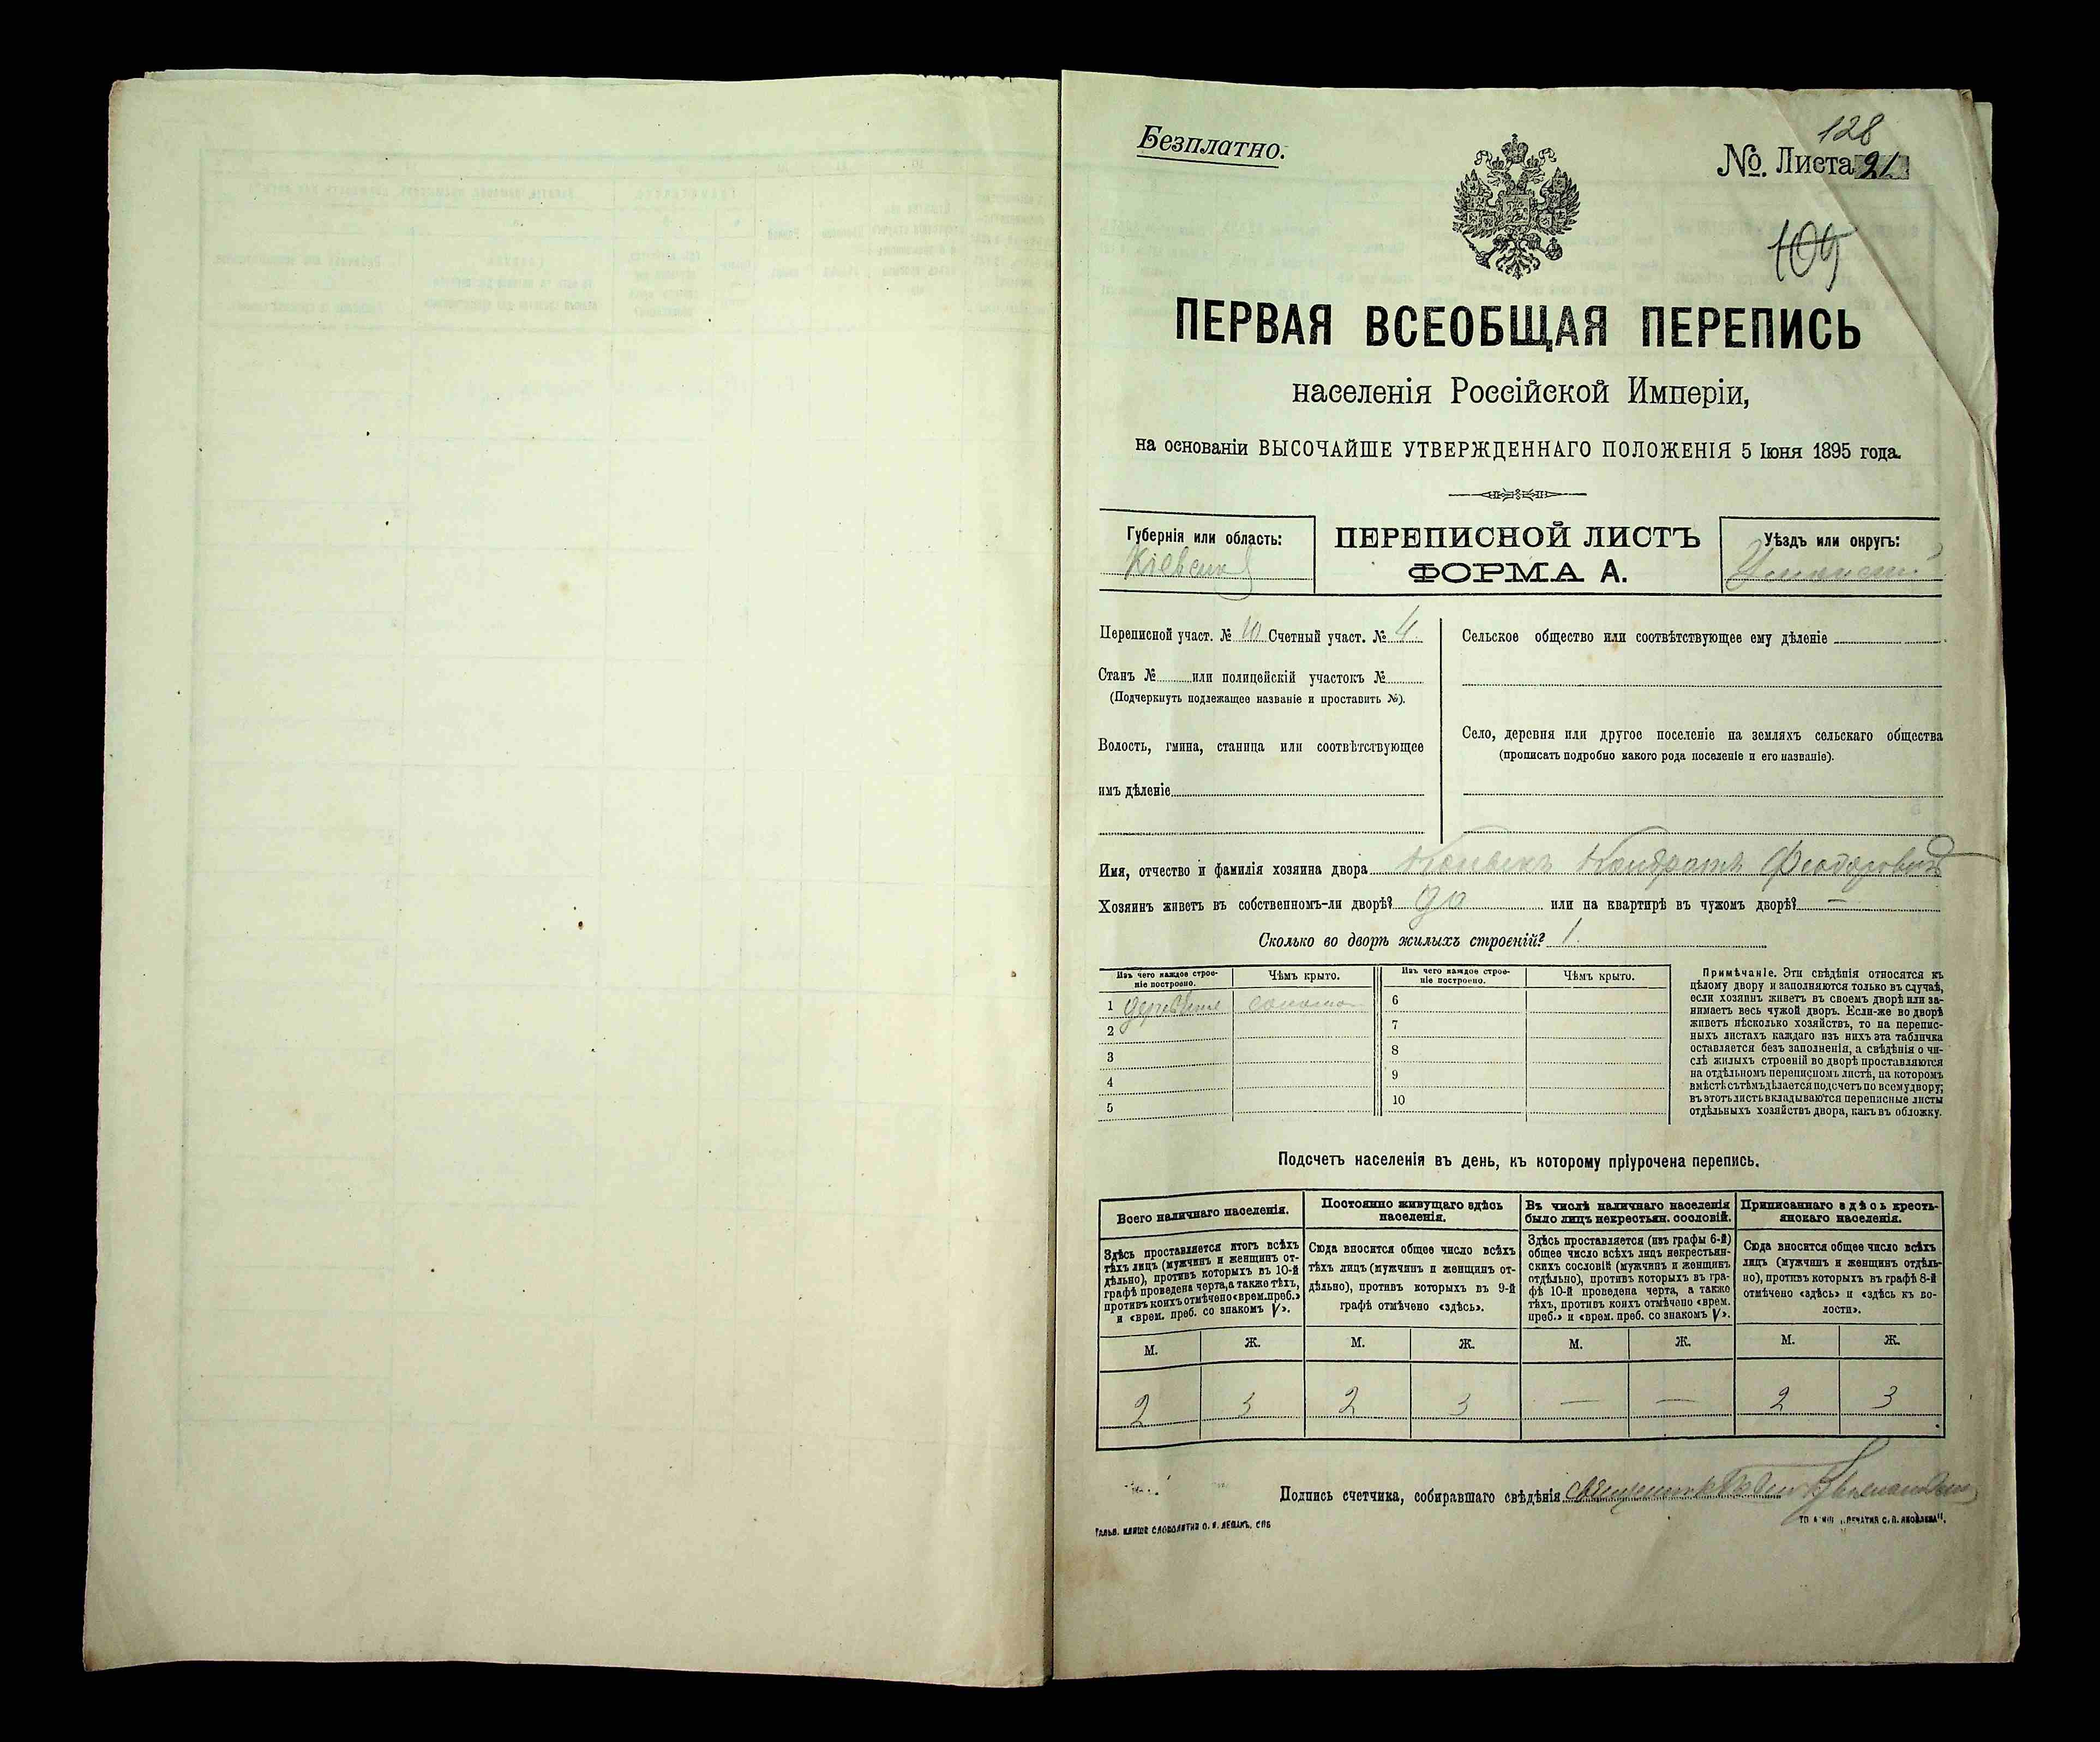 Безплатно.
128
№. Листа 21
109
ПЕРВАЯ ВСЕОБЩАЯ ПЕРЕПИСЬ
населенія Россійской Имперіи,
на основаніи ВЫСОЧАЙШЕ УТВЕРЖДЕННАГО ПОЛОЖЕНІЯ 5 Іюня 1895 года.
Губернія или область:
Кіевская
ПЕРЕПИСНОЙ ЛИСТЪ
ФОРМА А.
Уѣздъ или округъ:
Уманскій
Переписной участ. № 10 Счетный участ. № 4.
Станъ № или полицейскій участокъ №
(Подчеркнуть подлежащее названіе и проставить №).
Волость, гмина, станица или соотвѣтствующее
имъ дѣленіе
Сельское общество или соотвѣтствующее ему дѣленіе
Село, деревня или другое поселеніе на земляхъ сельскаго общества
(прописать подробно какого рода поселеніе и его названіе).
Имя, отчество и фамилія хозяина двора Кондратъ Феодоровичъ
Хозяинъ живетъ въ собственномъ-ли дворѣ? да или на квартирѣ въ чужомъ дворѣ? —
Сколько во дворѣ жилыхъ строеній? 1.
Изъ чего каждое строе-
ніе построено.
Чѣмъ крыто.
1
солома
2
3
4
5
Изъ чего каждое строе-
ніе построено.
Чѣмъ крыто.
6
7
8
9
10
Примѣчаніе. Эти свѣдѣнія относятся къ
цѣлому двору и заполняются только въ случаѣ,
если хозяинъ живетъ въ своемъ дворѣ или за-
нимаетъ весь чужой дворъ. Если-же во дворѣ
живетъ нѣсколько хозяйствъ, то на перепис-
ныхъ листахъ каждаго изъ нихъ эта табличка
оставляется безъ заполненія, а свѣдѣнія о чи-
слѣ жилыхъ строеній во дворѣ проставляются
на отдѣльномъ переписномъ листѣ, на которомъ
вмѣстѣ съ тѣмъ дѣлается подсчетъ по всему двору;
въ этотъ листъ вкладываются переписные листы
отдѣльныхъ хозяйствъ двора, какъ въ обложку.
Подсчетъ населенія въ день, къ которому пріурочена перепись.
Всего наличнаго населенія.
Здѣсь проставляется итогъ всѣхъ
тѣхъ лицъ (мужчинъ и женщинъ от-
дѣльно), противъ которыхъ въ 10-й
графѣ проведена черта, а также тѣхъ,
противъ коихъ отмѣчено «врем. преб.»
и «врем. преб. со знакомъ V».
М. Ж.
2 3
Постоянно живущаго здѣсь
населенія.
Сюда вносится общее число всѣхъ
тѣхъ лицъ (мужчинъ и женщинъ от-
дѣльно), противъ которыхъ въ 9-й
графѣ отмѣчено «здѣсь».
М. Ж.
2 3
Въ числѣ наличнаго населенія
было лицъ некрестьян. сословій.
Здѣсь проставляется (изъ графы 6-й)
общее число всѣхъ лицъ некрестьян-
скихъ сословій (мужчинъ и женщинъ
отдѣльно), противъ которыхъ въ гра-
фѣ 10-й проведена черта, а также
тѣхъ, противъ коихъ отмѣчено «врем.
преб.» и «врем. преб. со знакомъ V».
М. Ж.
— —
Приписаннаго здѣсь кресть-
янскаго населенія.
Сюда вносится общее число всѣхъ
лицъ (мужчинъ и женщинъ отдѣль-
но), противъ которыхъ въ графѣ 8-й
отмѣчено «здѣсь» и «здѣсь къ во-
лости».
М. Ж.
2 3
Подпись счетчика, собиравшаго свѣдѣнія